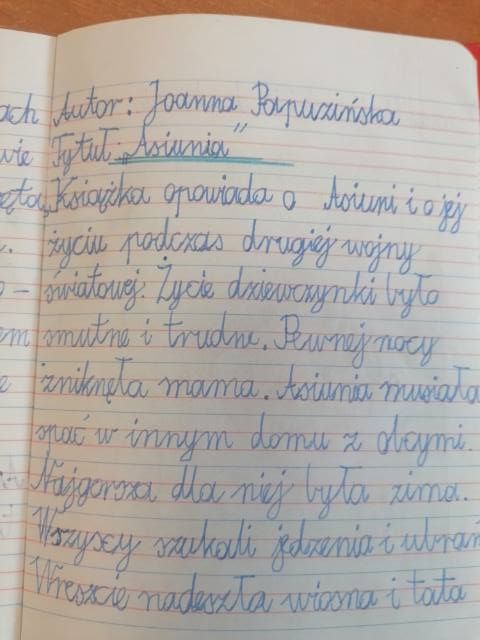 ach Autor: Joanna Papuzińska
wie Tytuł „Asiunia”
Książka opowiada o Asiuni i o jej
życiu podczas drugiej wojny
światowej. Życie dziewczynki było
em smutne i trudne. Pewnej nocy
żniknęła mama. Asiunia musiała
spać w innym domu z obcymi.
Najgorsza dla niej była zima.
Wszyscy szukali jedzenia i ubrań
Wreszcie nadeszła wiosna i tata